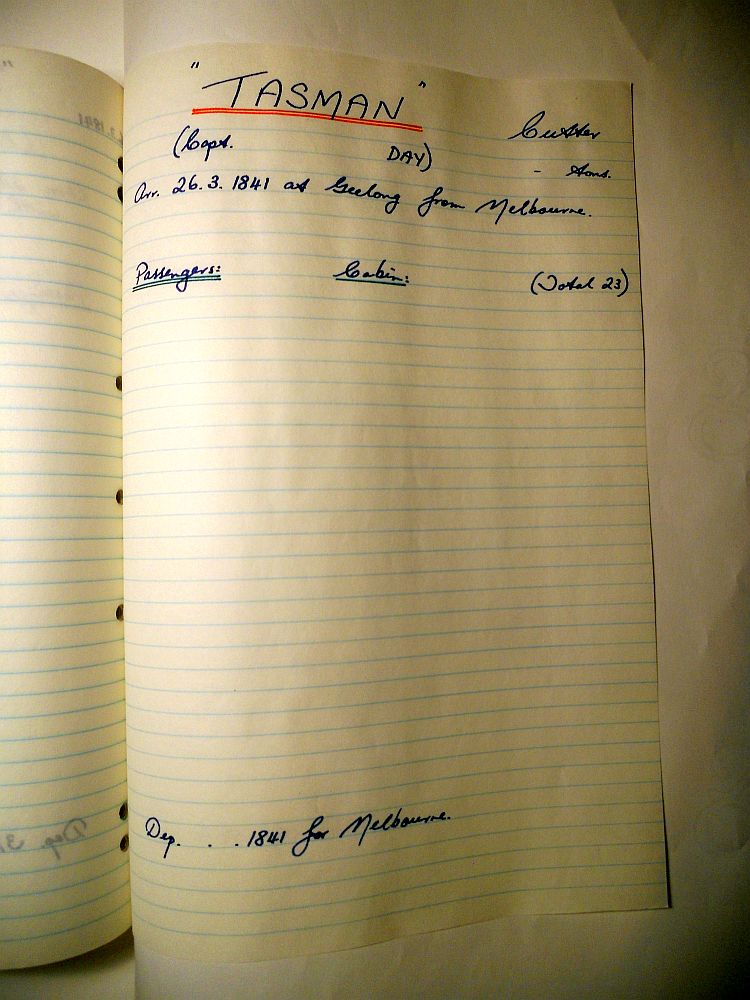 "TASMAN"
Cutter
(Capt. DAY) - tons.
Arr. 26.3.1841 at Geelong from Melbourne.
Passengers: Cabin: (Total 23)
Dep. . . 1841 for Melbourne.